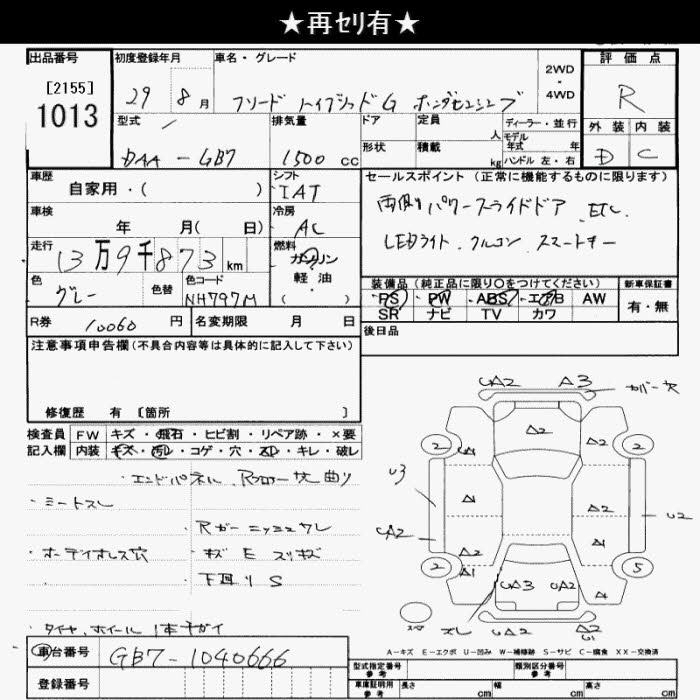 ★再ｾﾘ有★
出品番号
[2155]
1013
初度登録年月
29 8 月
車名・グレード
フリード ハイブリッド G ホンダセンシング
2WD
・
4WD
評価点
R
外装 内装
D C
型式
DAA-GB7
排気量
1500 cc
ドア
形状
定員
人
積載
kg
ディーラー・並行
モデル
年式 年
ハンドル 左・右
車歴
自家用・( )
シフト
IAT
セールスポイント (正常に機能するものに限ります)
両側パワースライドドア ETC
LEDライト クルコン スマートキー
車検
年 月( 日)
冷房
AC
走行
13万9千873 km
燃料
ガソリン
軽油
・( )
色
グレー
色替
色コード
NH797M
装備品 (純正品に限り○をつけてください)
PS PW ABS エアB AW
SR ナビ TV カワ
新車保証書
有・無
R券 10060 円
名変期限 月 日
後日品
注意事項申告欄 (不具合内容等は具体的に記入して下さい)
修復歴 有 [箇所 ]
検査員 FW キズ・飛石・ヒビ割・リペア跡・×要
記入欄 内装 キズ・汚レ・コゲ・穴・スレ・キレ・破レ
・エンドパネル、Rフロアー 曲り
・シートスレ
・Rガーニッシュワレ
・オーディオレス穴
・キズ E スリキズ
・下廻り S
・タイヤ、ホイール 1本チガイ
UA2 A3 カバー欠
2 A2 A2 2
U3 A1 A2 U2
UA2 A2 A1
2 A1 5
UA3 UA2 A1
ズレ UA2 A2
A－キズ E－エクボ U－凹み W－補修跡 S－サビ C－腐食 XX－交換済
車台番号 GB7-1040666
登録番号
型式指定番号
参考
類別区分番号
参考
車庫証明用
参考
長さ cm
幅 cm
高さ cm